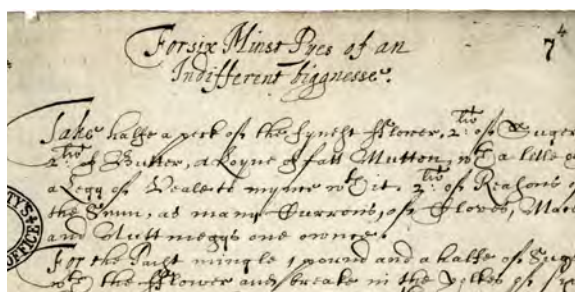 For six Minst Pyes of an
Indifferent biggnesse.
7
Take halfe a peck of the fynest fflower, 2li: of Suger
2li: of Butter, a Loyne of fatt Mutton, wth a litle of
a Legg of Veale to mynce wth it. 2li: of Reasons of
the Sunn, as many Currons, of Cloves, Mace
and Nuttmeggs one ownce.
For the Paist mingle 1 pound and a halfe of Suger
wth the fflower and breake in the yolkes of
TY'S
OFFICE